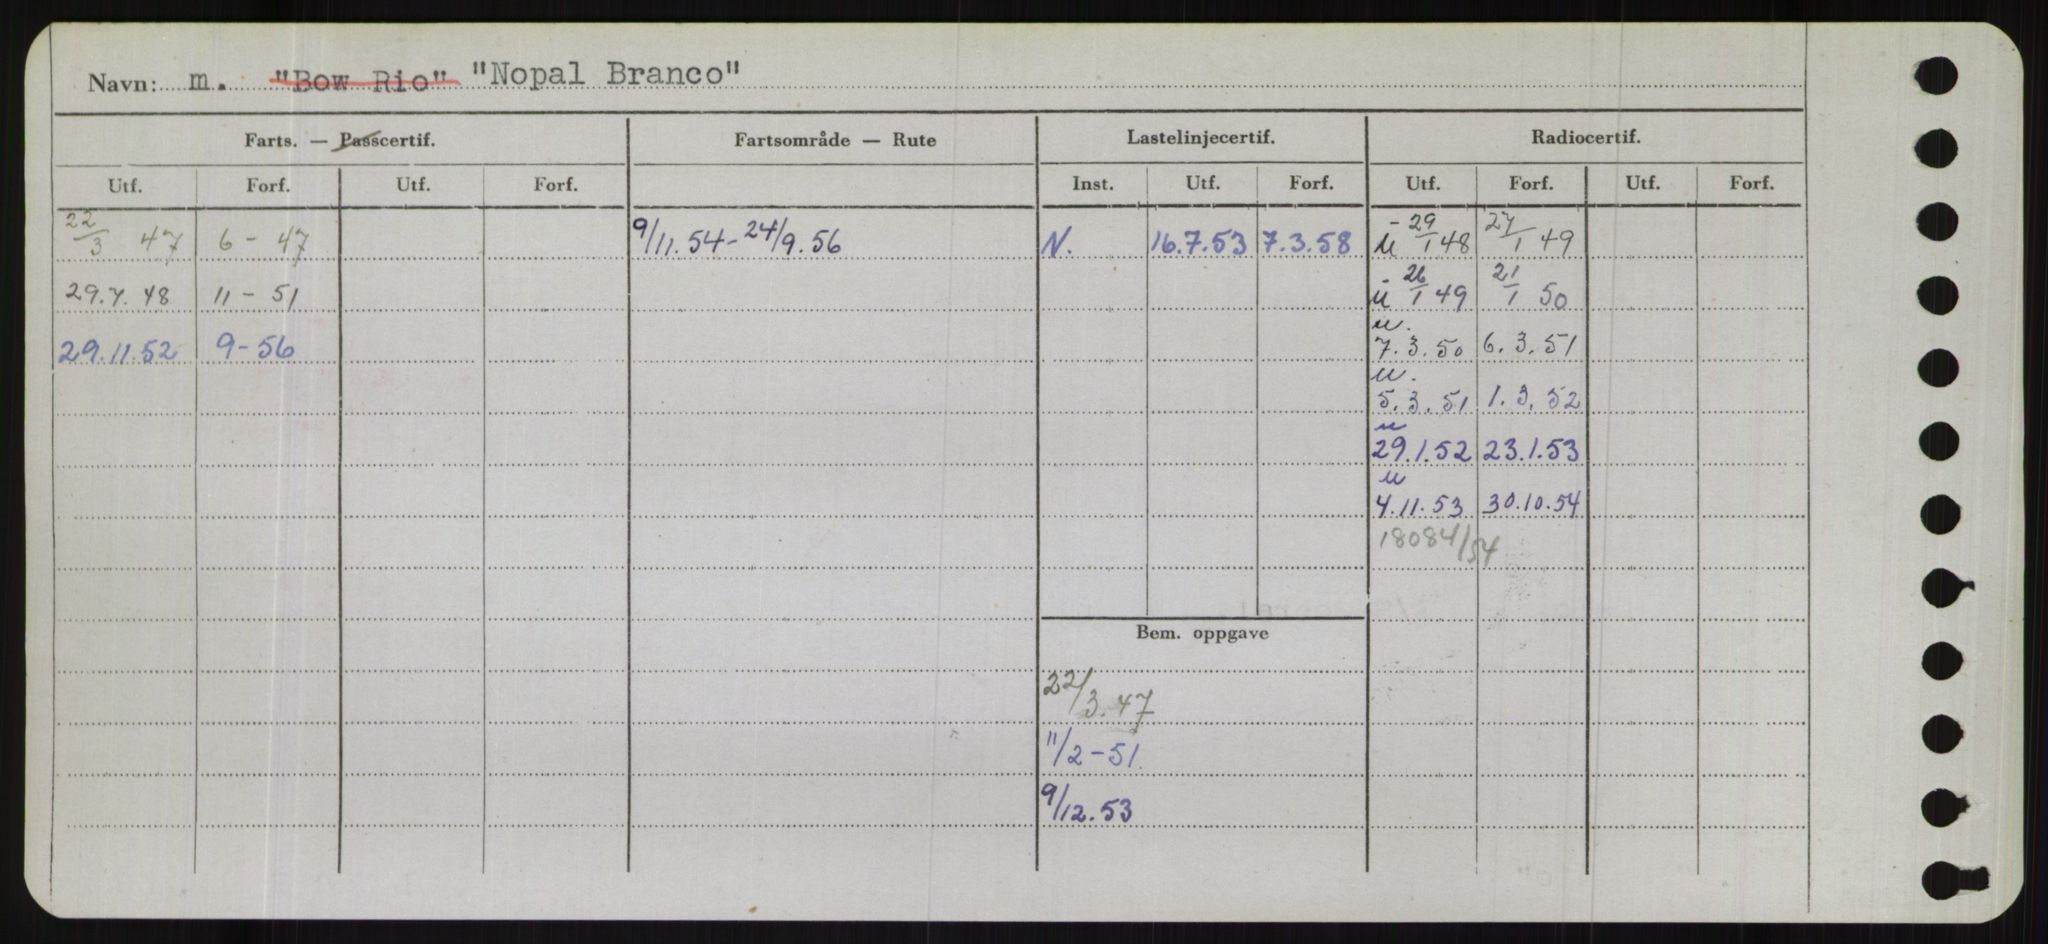 Navn: m. "Bow Rio" "Nopal Branco"
Farts. — Passcertif. Fartsområde — Rute Lastelinjecertif. Radiocertif.
Utf. Forf. Utf. Forf. Inst. Utf. Forf. Utf. Forf. Utf. Forf.
22/3 47 6 - 47 9/11.54 - 24/9.56 N. 16.7.53 7.3.58 u 29/1 48 27/1 49
29.7.48 11 - 51 u 26/1 49 21/1 50
u.
29.11.52 9-56 7.3.50 6.3.51
u.
5.3.51 1.3.52
u
29.1.52 23.1.53
u
4.11.53 30.10.54
18084/54
Bem. oppgave
22/3.47
11/2-51
9/12.53